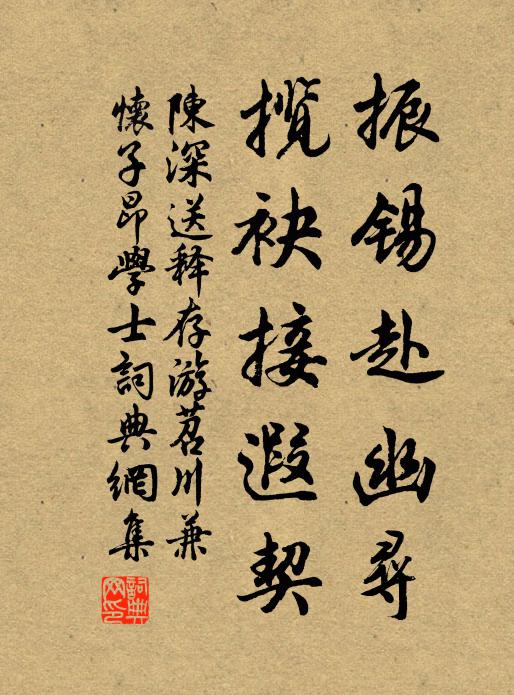 振锡赴幽尋
攬袂接遐契
陳深送释存游苕川兼
懷子昂學士詞典網集
詞典网印